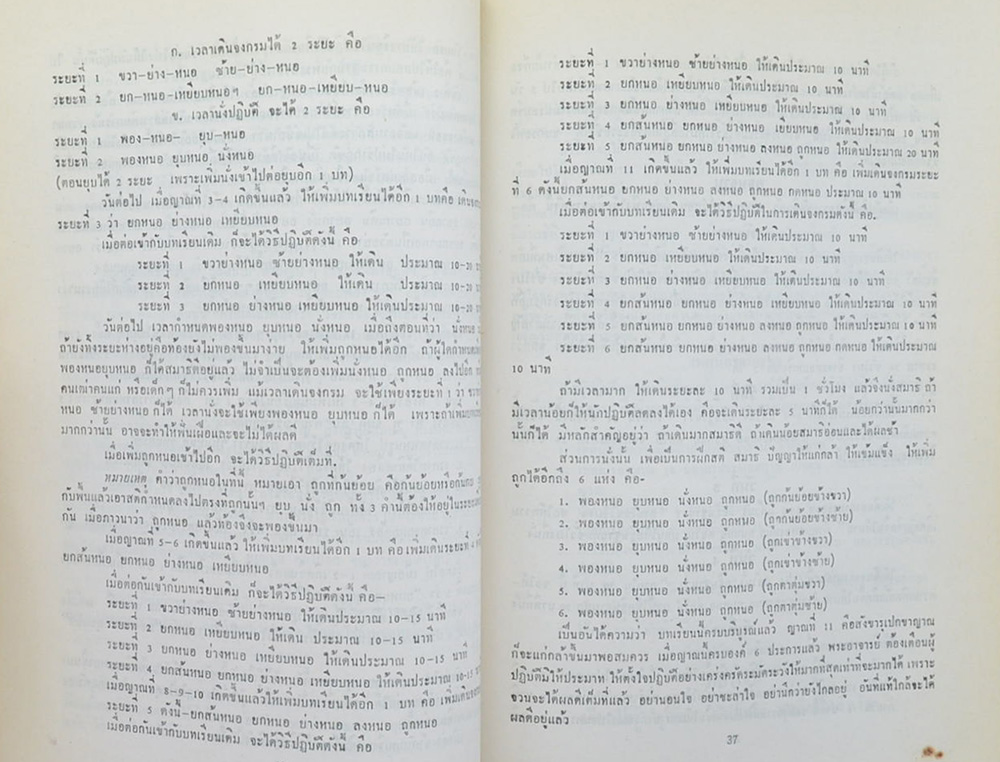 ก. เวลาเดินจงกรมได้ 2 ระยะ คือ
ระยะที่ 1 ขวา-ย่าง-หนอ ซ้าย-ย่าง-หนอ
ระยะที่ 2 ยก-หนอ-เหยียบหนอๆ ยก-หนอ-เหยียบ-หนอ
ข. เวลานั่งปฏิบัติ จะได้ 2 ระยะ คือ
ระยะที่ 1 พอง-หนอ- ยุบ-หนอ
ระยะที่ 2 พองหนอ ยุบหนอ นั่งหนอ
(ตอนยุบได้ 2 ระยะ เพราะเพิ่มนั่งเข้าไปต่อยุบอีก 1 บท)
วันต่อไป เมื่อญาณที่ 3-4 เกิดขึ้นแล้ว ให้เพิ่มบทเรียนได้อีก 1 บทคือ เดินจง
ระยะที่ 3 ว่า ยกหนอ ย่างหนอ เหยียบหนอ
เมื่อต่อเข้ากับบทเรียนเดิม ก็จะได้วิธีปฏิบัติดังนี้ คือ
ระยะที่ 1 ขวาย่างหนอ ซ้ายย่างหนอ ให้เดิน ประมาณ 10-20
ระยะที่ 2 ยกหนอ เหยียบหนอ ให้เดิน ประมาณ 10-20
ระยะที่ 3 ยกหนอ ย่างหนอ เหยียบหนอ ให้เดินประมาณ 10-20
วันต่อไป เวลากำหนดพองหนอ ยุบหนอ นั่งหนอ เมื่อถึงตอนที่ว่า นั่งหนอ
ถ้ายังทิ้งระยะห่างอยู่คือท้องยังไม่พองขึ้นมาง่าย ให้เพิ่มถูกหนอได้อีก ถ้าผู้ใดกำหนด
พองหนอยุบหนอ ก็ได้สมาธิดีอยู่แล้ว ไม่จำเป็นจะต้องเพิ่มนั่งหนอ ถูกหนอ ลงไปอีก
คนเฒ่าคนแก่ หรือเด็กๆ ก็ไม่ควรเพิ่ม แม้เวลาเดินจงกรม จะใช้เพียงระยะที่ 1 ว่า
หนอ ซ้ายย่างหนอ ก็ได้ เวลานั่งจะใช้เพียงพองหนอ ยุบหนอ ก็ได้ เพราะถ้าเพิ่ม
มากกว่านั้น อาจจะทำให้ฟั่นเฝือและจะไม่ได้ผลดี
เมื่อเพิ่มถูกหนอเข้าไปอีก จะได้วิธีปฏิบัติเต็มที่.
หมายเหตุ คำว่าถูกหนอในที่นี้ หมายเอา ถูกที่ก้นย้อย คือก้นย้อยหรือก้นกบ
กับพื้นแล้วเอาสติกำหนดลงไปตรงที่ถูกนั้นๆ ยุบ นั่ง ถูก ทั้ง 3 คำนี้ต้องให้อยู่ในระยะ
กัน เมื่อภาวนาว่า ถูกหนอ แล้วท้องจึงจะพองขึ้นมา
เมื่อญาณที่ 5-6 เกิดขึ้นแล้ว ให้เพิ่มบทเรียนได้อีก 1 บท คือ เพิ่มเดินระยะที่ 4
ยกส้นหนอ ยกหนอ ย่างหนอ เหยียบหนอ
เมื่อต่อกันเข้ากับบทเรียนเดิม ก็จะได้วิธีปฏิบัติดังนี้ คือ-
ระยะที่ 1 ขวาย่างหนอ ซ้ายย่างหนอ ให้เดินประมาณ 10-15 นาที
ระยะที่ 2 ยกหนอ เหยียบหนอ ให้เดิน ประมาณ 10-15 นาที
ระยะที่ 3 ยกหนอ ย่างหนอ เหยียบหนอ ให้เดินประมาณ 10-15 นาที
ระยะที่ 4 ยกส้นหนอ ยกหนอ ย่างหนอ เหยียบหนอ ให้เดินประมาณ 10-15 นาที
เมื่อญาณที่ 8-9-10 เกิดขึ้นแล้วให้เพิ่มบทเรียนได้อีก 1 บท คือ เพิ่มเดินจง
ระยะที่ 5 ดังนี้-ยกส้นหนอ ยกหนอ ย่างหนอ ลงหนอ ถูกหนอ
เมื่อต่อกันเข้ากับบทเรียนเดิม จะได้วิธีปฏิบัติดังนี้ คือ
ระยะที่ 1 ขวาย่างหนอ ซ้ายย่างหนอ ให้เดินประมาณ 10 นาที
ระยะที่ 2 ยกหนอ เหยียบหนอ ให้เดินประมาณ 10 นาที
ระยะที่ 3 ยกหนอ ย่างหนอ เหยียบหนอ ให้เดินประมาณ 10 นาที
ระยะที่ 4 ยกส้นหนอ ยกหนอ ย่างหนอ เยียบหนอ ให้เดินประมาณ 10 นาที
ระยะที่ 5 ยกส้นหนอ ยกหนอ ย่างหนอ ลงหนอ ถูกหนอ ให้เดินประมาณ 20 นาที
เมื่อญาณที่ 11 เกิดขึ้นแล้ว ให้เพิ่มบทเรียนได้อีก 1 บท คือ เพิ่มเดินจงกรมระยะ
ที่ 6 ดังนี้ยกส้นหนอ ยกหนอ ย่างหนอ ลงหนอ ถูกหนอ กดหนอ ประมาณ 10 นาที
เมื่อต่อเข้ากับบทเรียนเดิม จะได้วิธีปฏิบัติในการเดินจงกรมดังนี้ คือ.
ระยะที่ 1 ขวาย่างหนอ ซ้ายย่างหนอ ให้เดินประมาณ 10 นาที
ระยะที่ 2 ยกหนอ เหยียบหนอ ให้เดินประมาณ 10 นาที
ระยะที่ 3 ยกหนอ ย่างหนอ เหยียบหนอ ให้เดินประมาณ 10 นาที
ระยะที่ 4 ยกส้นหนอ ยกหนอ ย่างหนอ เหยียบหนอ ให้เดินประมาณ 10 นาที
ระยะที่ 5 ยกส้นหนอ ยกหนอ ย่างหนอ ลงหนอ ถูกหนอ ให้เดินประมาณ 10 นาที
ระยะที่ 6 ยกส้นหนอ ยกหนอ ย่างหนอ ลงหนอ ถูกหนอ กดหนอ ให้เดินประมาณ
10 นาที
ถ้ามีเวลามาก ให้เดินระยะละ 10 นาที รวมเป็น 1 ชั่วโมง แล้วจึงนั่งสมาธิ ถ้า
มีเวลาน้อยก็ให้นักปฏิบัติลดลงได้เอง คือจะเดินระยะละ 5 นาทีก็ได้ น้อยกว่านั้นมากกว่า
นั้นก็ได้ มีหลักสำคัญอยู่ว่า ถ้าเดินมากสมาธิดี ถ้าเดินน้อยสมาธิอ่อนและได้ผลช้า
ส่วนการนั่งนั้น เพื่อเป็นการฝึกสติ สมาธิ ปัญญาให้แก่กล้า ให้เข้มแข็ง ให้เพิ่ม
ถูกได้อีกถึง 6 แห่ง คือ-
1. พองหนอ ยุบหนอ นั่งหนอ ถูกหนอ (ถูกก้นย้อยข้างขวา)
2. พองหนอ ยุบหนอ นั่งหนอ ถูกหนอ (ถูกก้นย้อยข้างซ้าย)
3. พองหนอ ยุบหนอ นั่งหนอ ถูกหนอ (ถูกเข่าข้างขวา)
4. พองหนอ ยุบหนอ นั่งหนอ ถูกหนอ (ถูกเข่าข้างซ้าย)
5. พองหนอ ยุบหนอ นั่งหนอ ถูกหนอ (ถูกตาตุ่มขวา)
6. พองหนอ ยุบหนอ นั่งหนอ ถูกหนอ (ถูกตาตุ่มซ้าย)
เป็นอันได้ความว่า บทเรียนนี้ครบบริบูรณ์แล้ว ญาณที่ 11 คือสังขารุเปกขาญาณ
ก็จะแก่กล้าขึ้นมาพอสมควร เมื่อญาณนี้ครบองค์ 6 ประการแล้ว พระอาจารย์ ต้องเตือนผู้
ปฏิบัติมิให้ประมาท ให้ตั้งใจปฏิบัติอย่างเคร่งครัดระมัดระวังให้มากที่สุดเท่าที่จะมากได้ เพราะ
จวนจะได้ผลดีเต็มที่แล้ว อย่านอนใจ อย่าชะล่าใจ อย่านึกว่ายังไกลอยู่ อันที่แท้ใกล้จะได้
ผลดีอยู่แล้ว
37